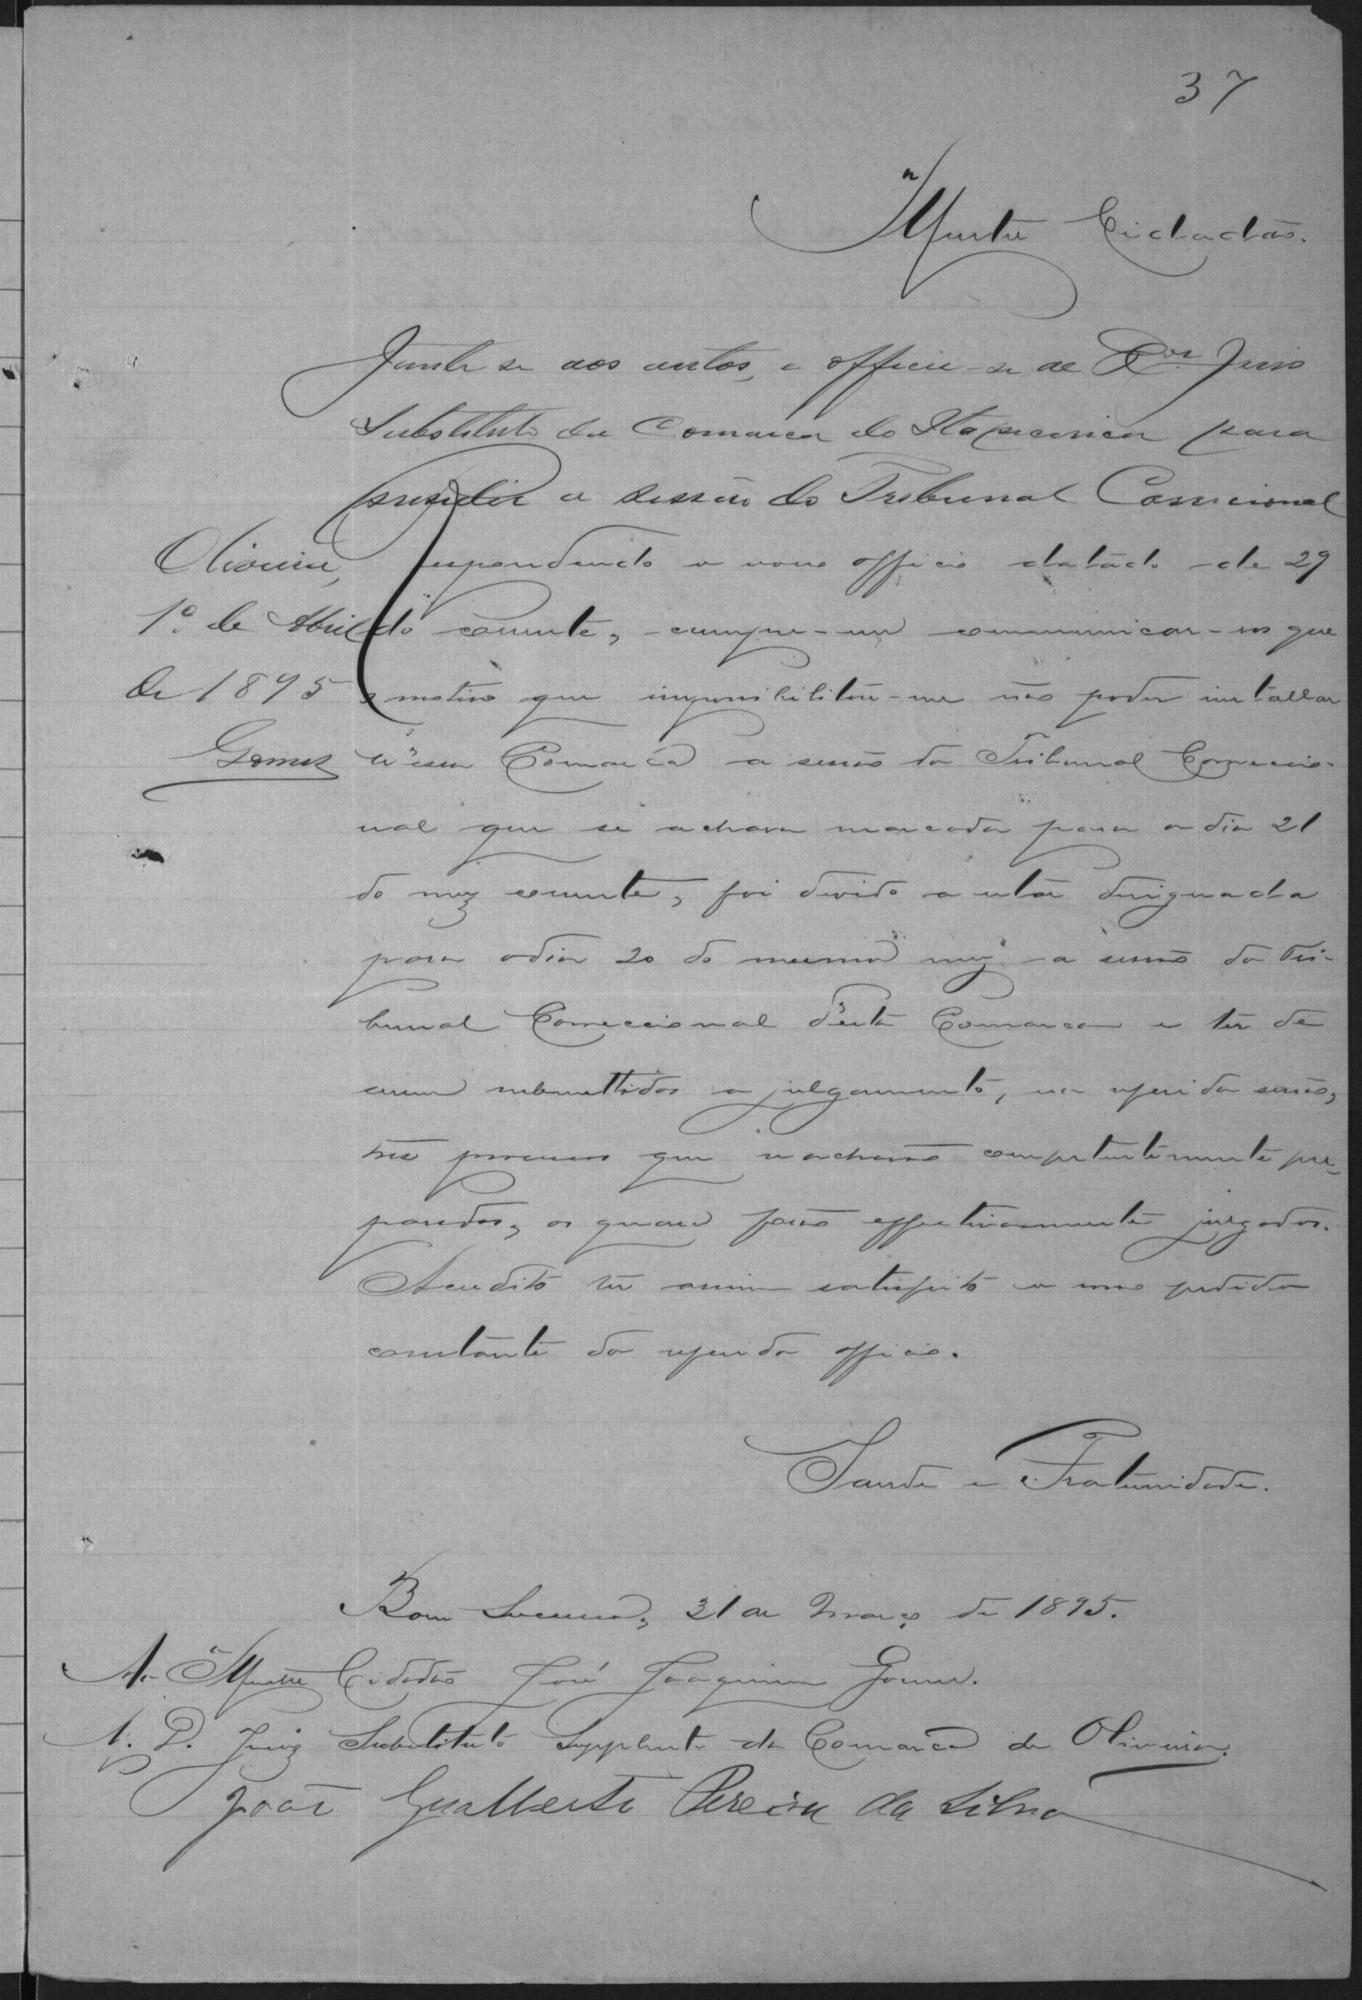 37
Illustre Cidadão.
Junte se aos autos, e officie-se ao Dor. Juiz
Substituto da Comarca de Itapecerica para
presidir a sessão do Tribunal Correcional
Oliveira,
1º. de Abril
de 1895
Gomes
Respondendo o vosso officio datado de 29
do corrente, cumpre-me communicar-vos que
o motivo que impossibilitou-me não poder installar
n'essa Comarca a sessão do Tribunal Correccio-
nal que se achava marcada para o dia 21
do mez corrente, foi devido a estar designada
para o dia 20 do mesmo mez a sessão do Tri-
bunal Correccional d'esta Comarca e ter de
serem submettidos a julgamento, na referida sessão,
tres processos que se achavão competentemente pre-
parados, os quaes forão effectivamente julgados.
Acredito ter assim satisfeito o vosso pedido
constante do referido officio.
Saude e Fraternidade.
Bom Successo, 31 de Março de 1895.
Ao Illustre Cidadão José Joaquim Gomes.
M. D. Juiz Substituto Supplente da Comarca de Oliveira.
João Gualberto Pereira da Silva